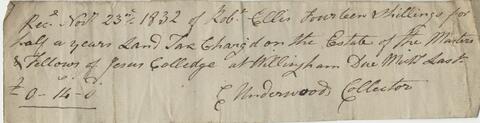 Rec.d Nov.r 23.d 1832 of Rob.t Ellis Fourteen Shillings for
half a years Land Tax Charg'd on the Estate of the Masters
& Fellows of Jesus Colledge at Willingham Due Mich.s Last
£ 0 - 14 - 0
C Underwood Collector